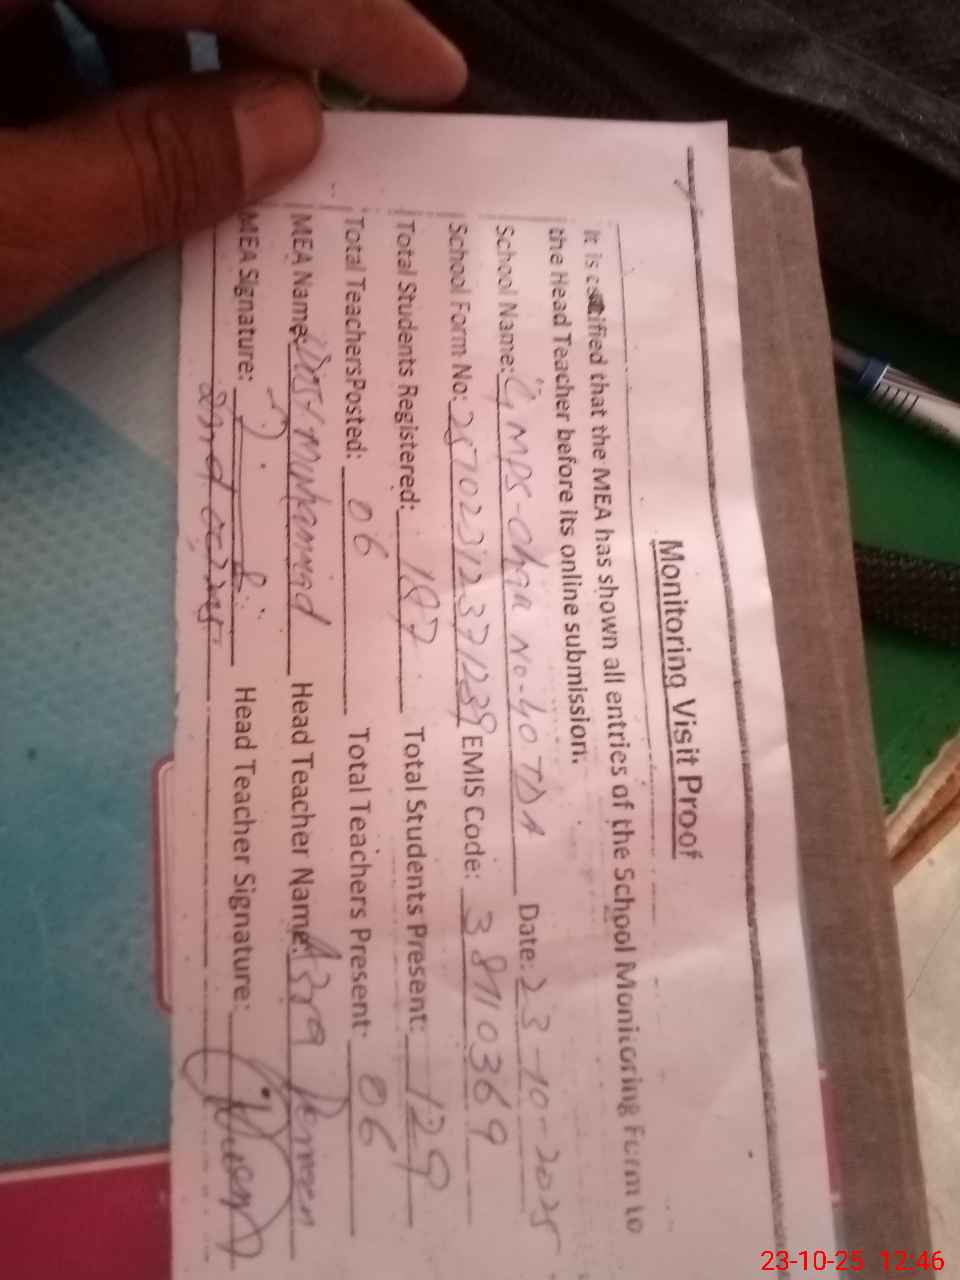 Monitoring Visit Proof
It is certified that the MEA has shown all entries of the School Monitoring Form to
the Head Teacher before its online submission.
School Name: GMPS-Chak No-40 TDA Date: 23-10-2025
School Form No: EMIS Code: 38110369
Total Students Registered: 187 Total Students Present: 129
Total TeachersPosted: 06 Total Teachers Present: 06
MEA Name: Dost Muhammad Head Teacher Name: Azra Perveen
MEA Signature: Head Teacher Signature:
23-10-25 12:46